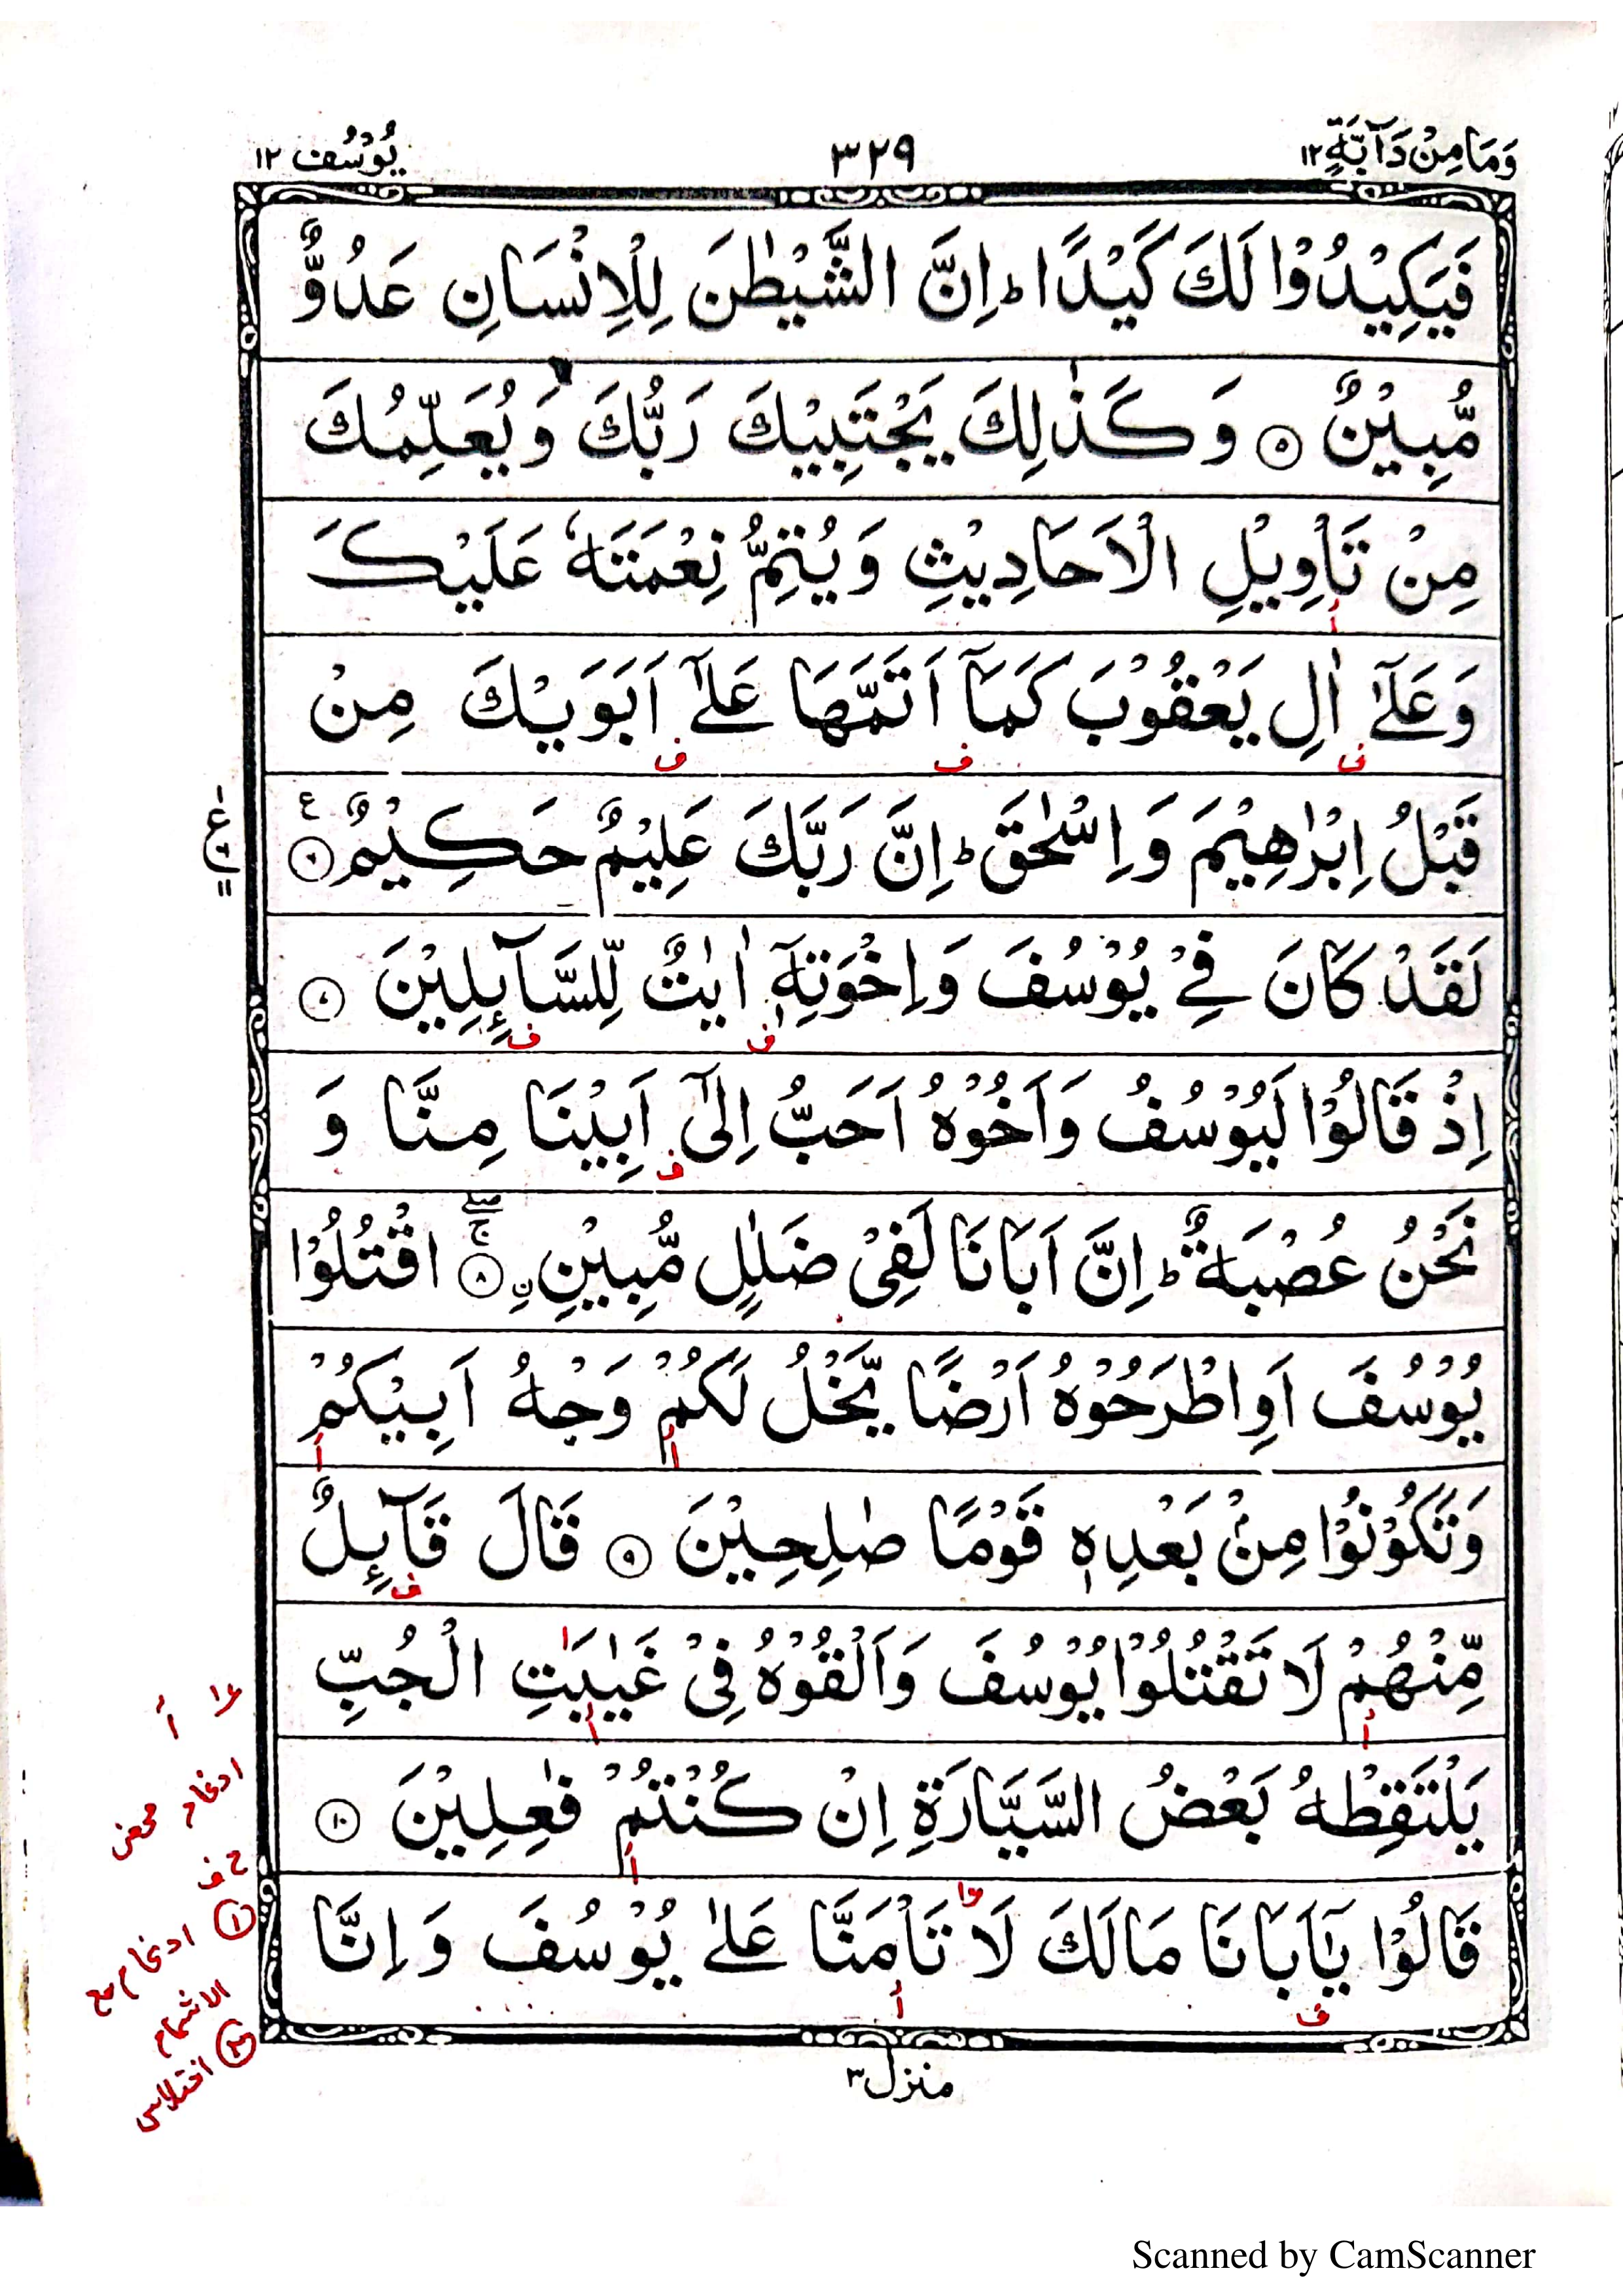 وَمَا مِنْ دَآبَّةٍ ١٢
٣٢٩
يُوْسُف ١٢
فَيَكِيْدُوْا لَكَ كَيْدًا ؕ اِنَّ الشَّيْطٰنَ لِلْاِنْسَانِ عَدُوٌّ
مُّبِيْنٌ ۝٥ وَ كَذٰلِكَ يَجْتَبِيْكَ رَبُّكَ وَ يُعَلِّمُكَ
مِنْ تَاْوِيْلِ الْاَحَادِيْثِ وَ يُتِمُّ نِعْمَتَهٗ عَلَيْكَ
أ
وَ عَلٰۤى اٰلِ يَعْقُوْبَ كَمَاۤ اَتَمَّهَا عَلٰۤى اَبَوَيْكَ مِنْ
ف ف ف
قَبْلُ اِبْرٰهِيْمَ وَ اِسْحٰقَ ؕ اِنَّ رَبَّكَ عَلِيْمٌ حَكِيْمٌ ۝٦ ع
لَقَدْ كَانَ فِيْ يُوْسُفَ وَ اِخْوَتِهٖۤ اٰيٰتٌ لِّلسَّآىِٕلِيْنَ ۝٧
ف ف
اِذْ قَالُوْا لَيُوْسُفُ وَ اَخُوْهُ اَحَبُّ اِلٰۤى اَبِيْنَا مِنَّا وَ
ف
نَحْنُ عُصْبَةٌ ؕ اِنَّ اَبَانَا لَفِيْ ضَلٰلٍ مُّبِيْنِ ۝٨ۚۖ اقْتُلُوْا
يُوْسُفَ اَوِ اطْرَحُوْهُ اَرْضًا يَّخْلُ لَكُمْ وَجْهُ اَبِيْكُمْ
أ أ
وَ تَكُوْنُوْا مِنْۢ بَعْدِهٖ قَوْمًا صٰلِحِيْنَ ۝٩ قَالَ قَآىِٕلٌ
ف
مِّنْهُمْ لَا تَقْتُلُوْا يُوْسُفَ وَ اَلْقُوْهُ فِيْ غَيٰبَتِ الْجُبِّ
أ أ
يَلْتَقِطْهُ بَعْضُ السَّيَّارَةِ اِنْ كُنْتُمْ فٰعِلِيْنَ ۝١٠
أ
قَالُوْا يٰۤاَبَانَا مَا لَكَ لَا تَاْمَنَّا عَلٰى يُوْسُفَ وَ اِنَّا
ف أ
منزل ٣
ادغام محض
ف ٢
① ادغام مع
الاشمام
② اختلاس
Scanned by CamScanner